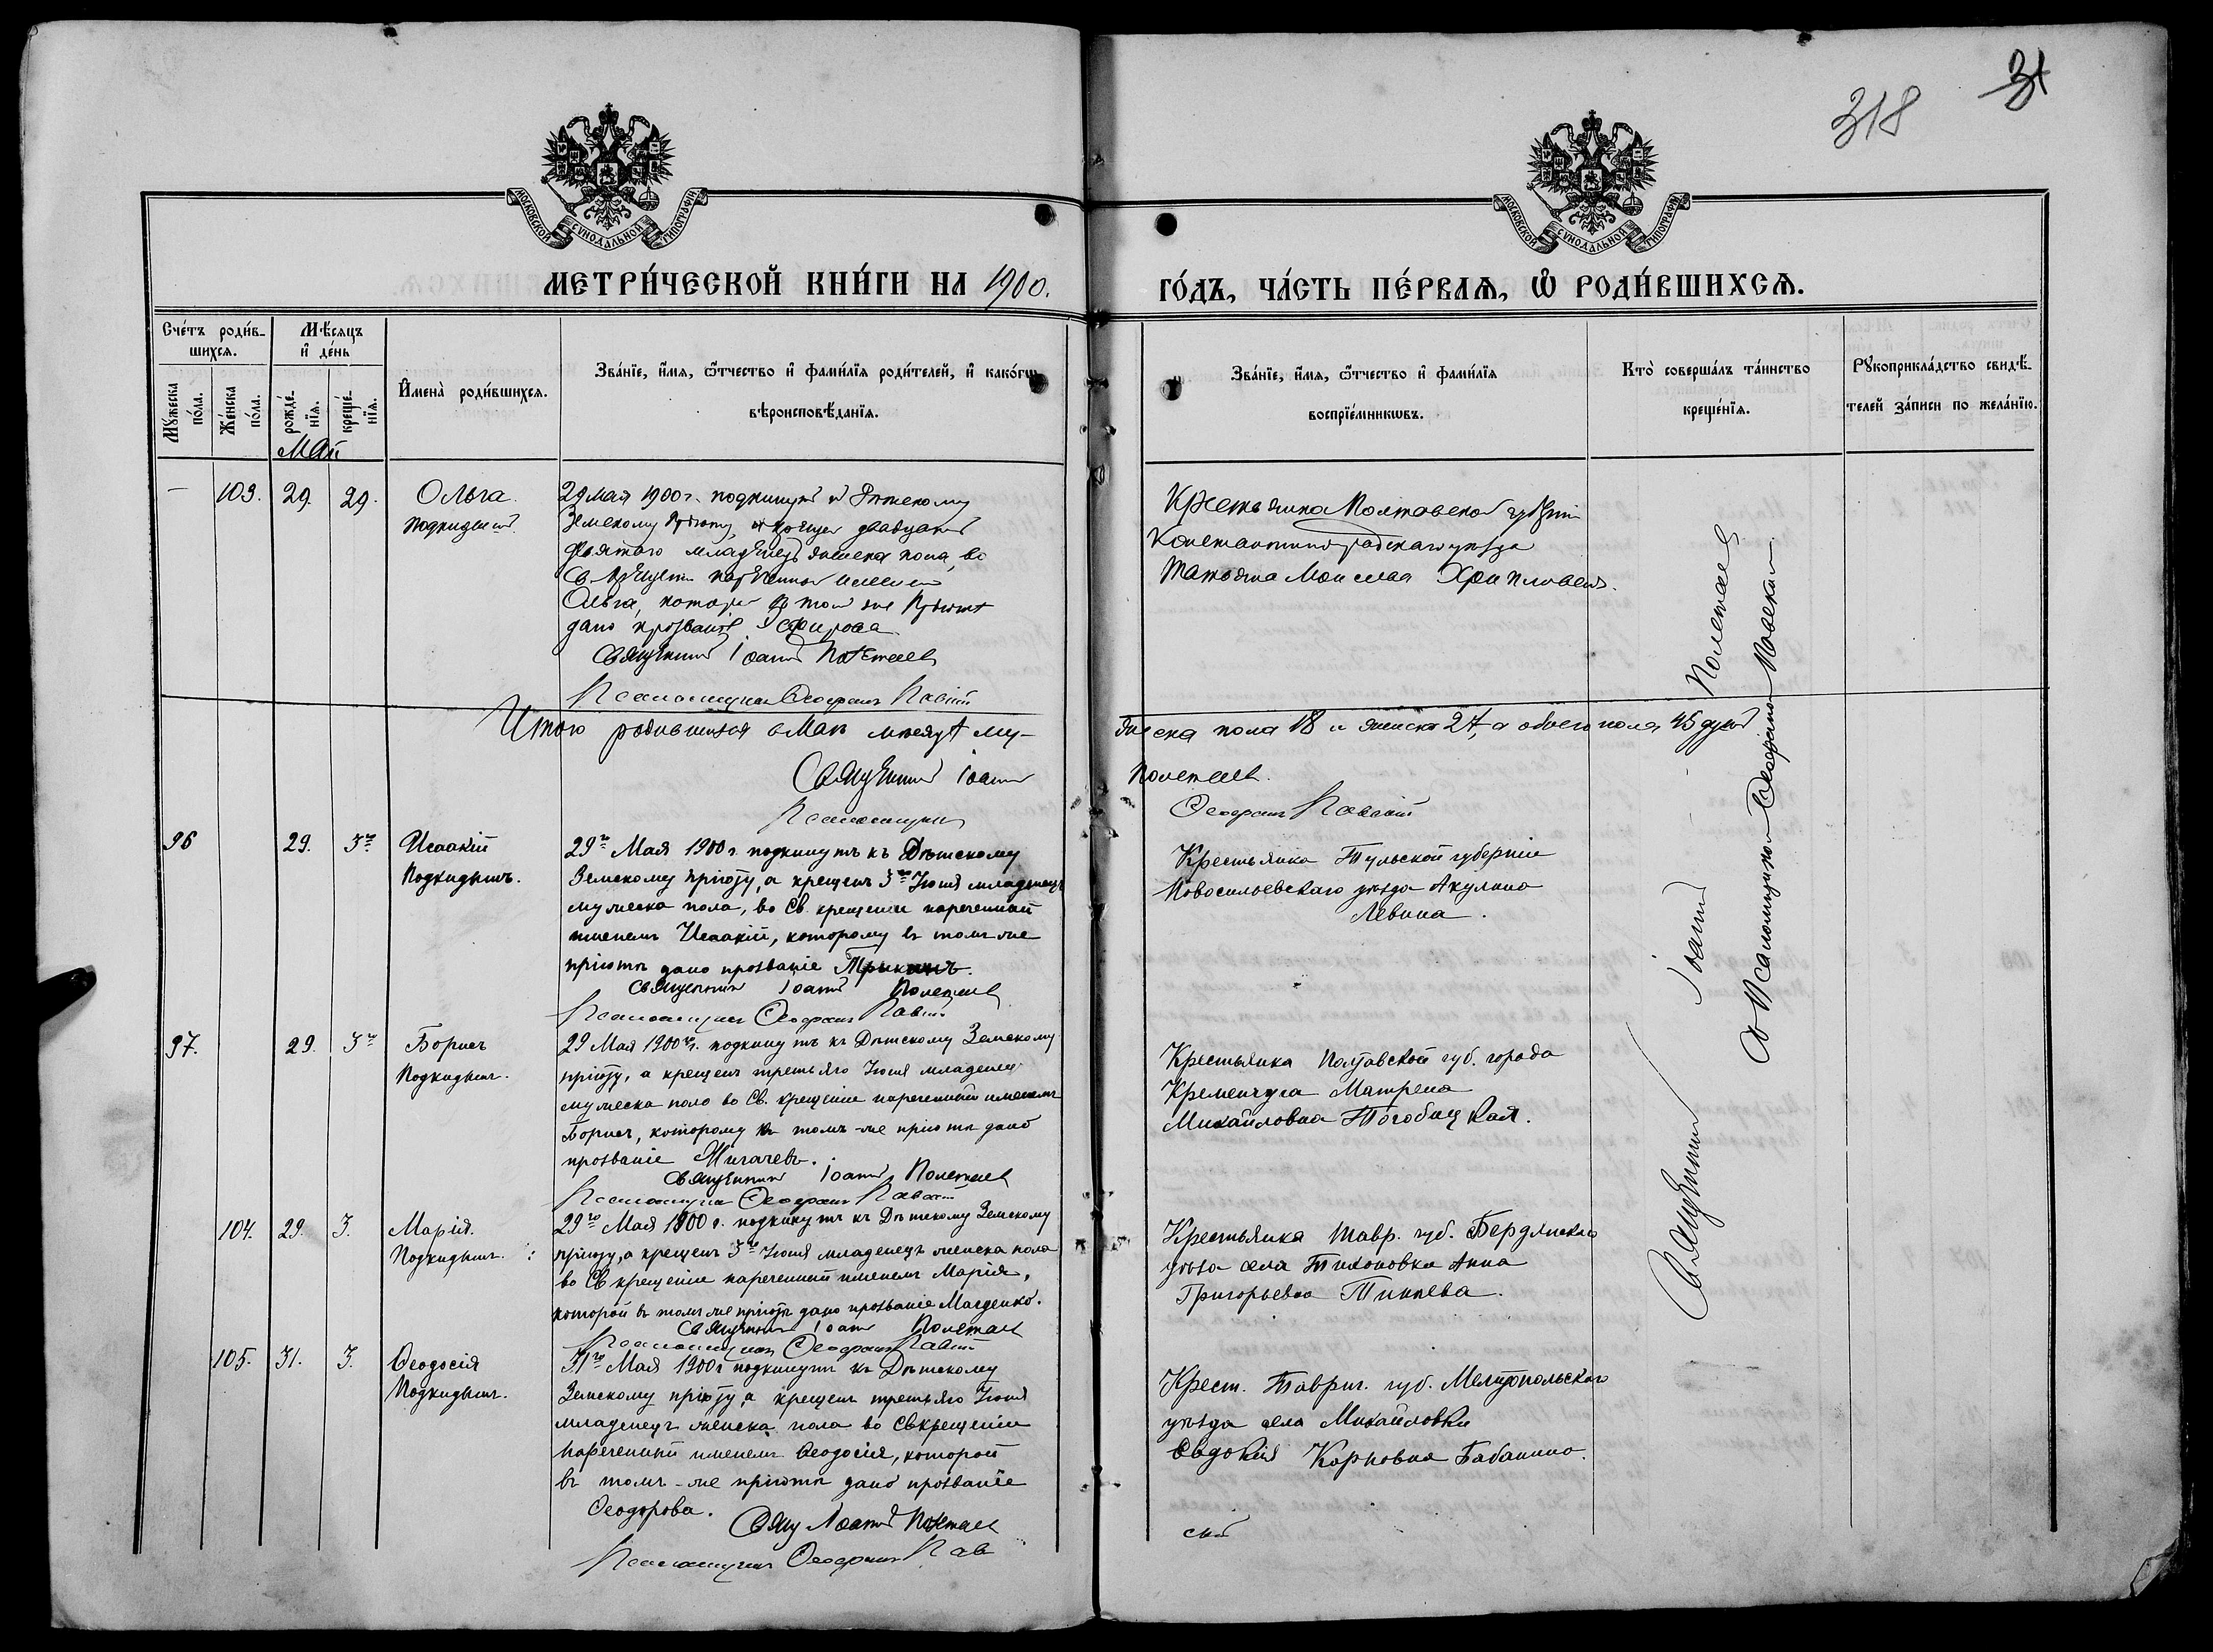 318
31
МОСКОВСКОЙ СѴНОДАЛЬНОЙ ТИПОГРАФІИ
МОСКОВСКОЙ СѴНОДАЛЬНОЙ ТИПОГРАФІИ
МЕТРИ́ЧЕСКОЙ КНИ́ГИ НА 1900.
ГО́ДЪ, ЧА́СТЬ ПЕ́РВАѦ, Ѡ РОДИ́ВШИХСѦ.
Сче́тъ роди́в-
шихсѧ.
Мꙋ́жеска по́ла.
Же́нска по́ла.
Мѣ́сѧцъ
и҆ де́нь
рожде́-
нїѧ.
креще́-
нїѧ.
Май
И҆мена̀ роди́вшихсѧ.
Зва́нїе, и҆́мѧ, ѻ҆́тчество и҆ фами́лїѧ роди́телей, и҆ како́гѡ
вѣроисповѣ́данїѧ.
Зва́нїе, и҆́мѧ, ѻ҆́тчество и҆ фами́лїѧ
воспрїе́мникѡвъ.
Кто̀ соверша́лъ та́инство
креще́нїѧ.
Рꙋкоприкла́дство свидѣ́-
телей за́писи по жела́нїю.
—
103.
29.
29.
Ольга
Подкидышъ
29 Мая 1900 г. подкинутъ къ Дѣтскому
Земскому Пріюту, крещенъ двадцать
девятаго младенецъ женска пола, во
Св. Крещеніи нареченный именемъ
Ольга, которой въ томъ же Пріютѣ
дано прозваніе
Священникъ Іоаннъ Полетаевъ
Псаломщикъ Ѳеофанъ Павскій
Крестьянка Полтавской губерніи
Константиноградскаго уѣзда
Татьяна
Итого родившихся въ Маѣ мѣсяцѣ му-
жеска пола 18 и женска 27, а обоего пола 45 душъ
Священникъ Іоаннъ
Полетаевъ.
Псаломщикъ
Ѳеофанъ Павскій
96
29.
3го
Исаакій
Подкидышъ.
29го Мая 1900 г. подкинутъ къ Дѣтскому
Земскому пріюту, а крещенъ 3го Іюня младенецъ
мужеска пола, во Св. крещеніи нареченный
именемъ Исаакій, которому въ томъ же
пріютѣ дано прозваніе
Священникъ Іоаннъ Полетаевъ
Псаломщикъ Ѳеофанъ Павскій
Крестьянка Тульской губерніи
Новосильевскаго уѣзда Акулина
Левина.
97.
29.
3го
Борисъ
Подкидышъ.
29 Мая 1900 г. подкинутъ къ Дѣтскому Земскому
пріюту, а крещенъ третьяго Іюня младенецъ
мужеска пола во Св. крещеніи нареченный именемъ
Борисъ, которому въ томъ-же пріютѣ дано
прозваніе Мигачевъ.
Священникъ Іоаннъ Полетаевъ
Псаломщикъ Ѳеофанъ Павскій
Крестьянка Полтавской губ. города
Кременчуга Матрена
Михайловна
104.
29.
3.
Марія.
Подкидышъ.
29го Мая 1900 г. подкинутъ къ Дѣтскому Земскому
пріюту, а крещенъ 3го Іюня младенецъ женска пола
во Св крещеніи нареченный именемъ Марія,
которой въ томъ же пріютѣ дано прозваніе Магденко.
Священникъ Іоаннъ Полетаевъ
Псаломщикъ Ѳеофанъ Павскій
Крестьянка Тавр. губ. Бердянскаго
уѣзда села Тихоновка Анна
Григорьевна
105.
31.
3.
Ѳеодосія
Подкидышъ.
31го Мая 1900 г подкинутъ къ Дѣтскому
Земскому пріюту, а крещенъ третьяго Іюня
младенецъ женска пола во Св крещеніи
нареченный именемъ Ѳеодосія, которой
въ томъ-же пріютѣ дано прозваніе
Ѳеодорова.
Свящ Іоаннъ Полетаевъ
Псаломщикъ Ѳеофанъ Пав
скій
Крест. Таврич. губ. Мелитопольскаго
уѣзда села Михайловки
Евдокія Карповна Бабанина.
Священникъ Іоаннъ Полетаевъ
Псаломщикомъ Ѳеофаномъ Павскимъ